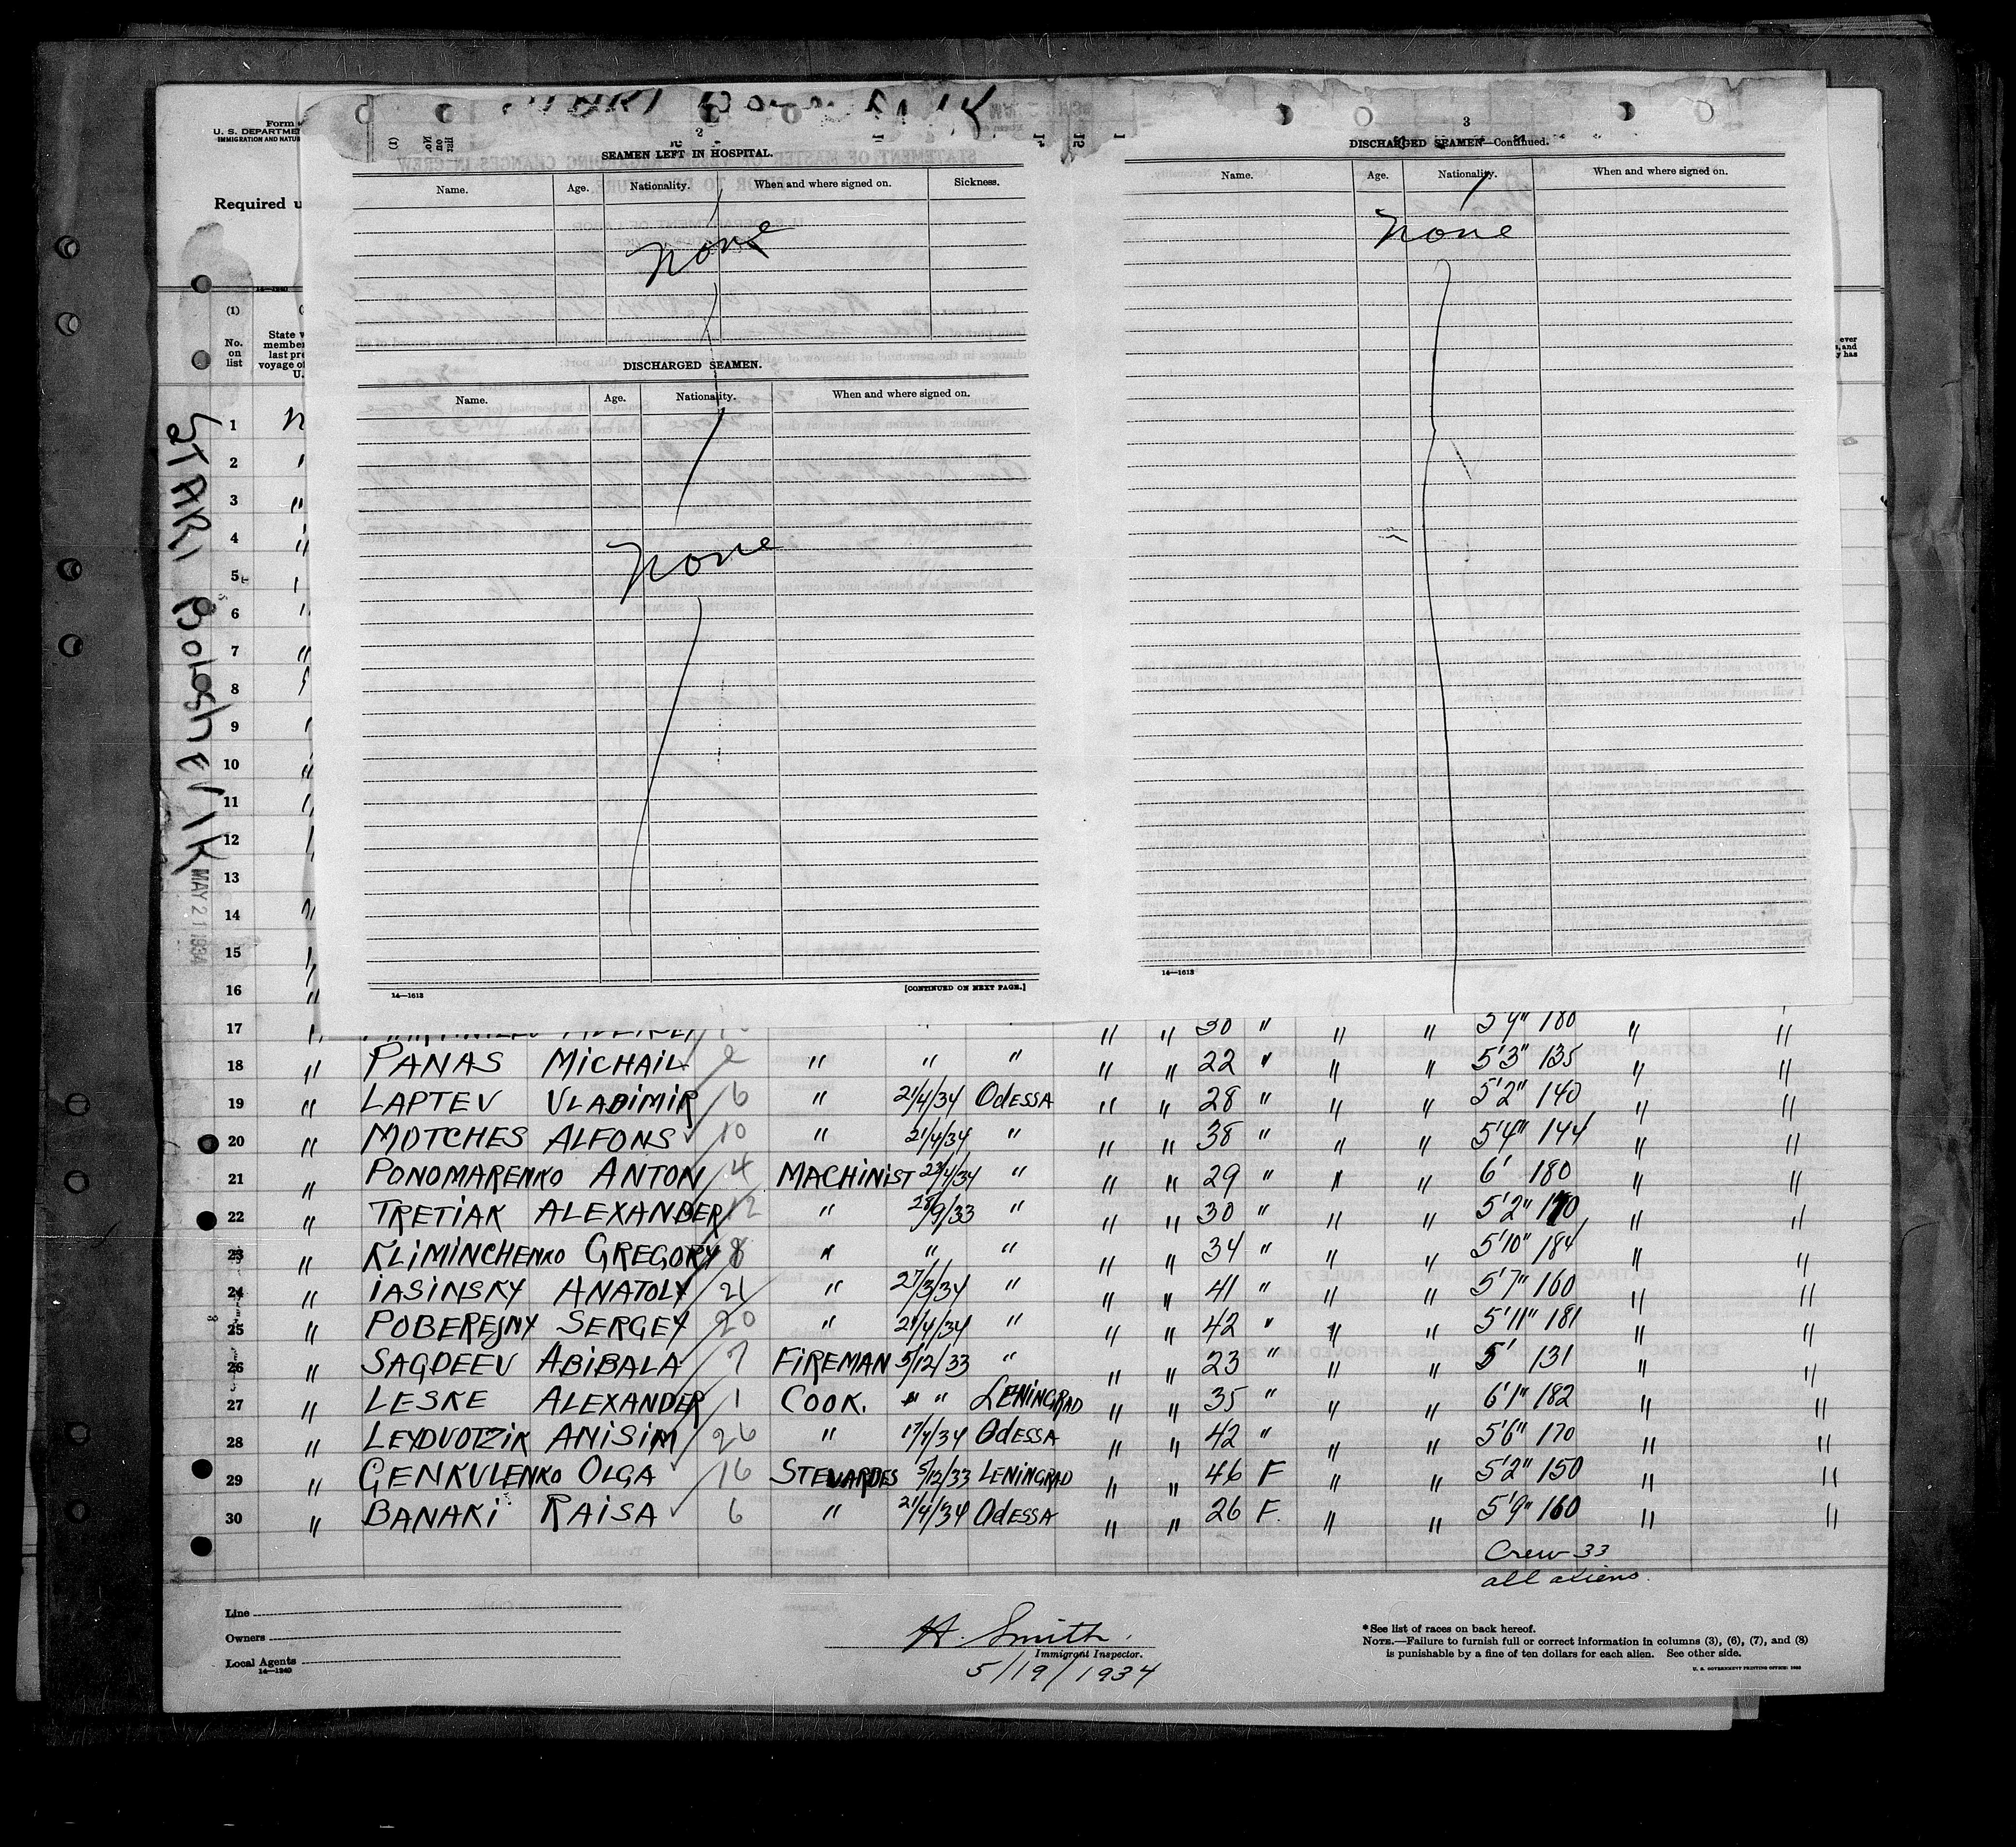 Form
U. S. DEPARTMEN
IMMIGRATION AND NATUR
Required u
(1)
No.
on
list
State w
member
last pre
voyage of
U.
STARI BOLSHEVIK
MAY 21 1934
2
SEAMEN LEFT IN HOSPITAL.
Name. Age. Nationality. When and where signed on. Sickness.
None
DISCHARGED SEAMEN.
Name. Age. Nationality. When and where signed on.
None
14—1613
[CONTINUED ON NEXT PAGE.]
3
DISCHARGED SEAMEN—Continued.
Name. Age. Nationality. When and where signed on.
None
14—1613
ever
s, and
y has
1
2 "
3 "
4 "
5 "
6 "
7 "
8
9 "
10 "
11 "
12 "
13
14 "
15 "
16 "
17 " " " 30 " " " 5'9" 180 "
18 " PANAS MICHAIL 2 " " " " " 22 " " " 5'3" 135 " "
19 " LAPTEV VLADIMIR 6 " 21/4/34 ODESSA " " 28 " " " 5'2" 140 " "
20 " MOTCHES ALFONS 10 " 21/4/34 " " " 38 " " " 5'4" 144 " "
21 " PONOMARENKO ANTON 4 MACHINIST 23/4/34 " " " 29 " " " 6' 180 " "
22 " TRETIAK ALEXANDER 12 " 25/9/33 " " 30 " " " 5'2" 170 " "
23 " KLIMINCHENKO GREGORY 8 " " " " " 34 " " " 5'10" 184 " "
24 " IASINSKY ANATOLY 21 " 27/3/34 " " " 41 " " " 5'7" 160 " "
25 " POBEREJNY SERGEY 20 " 21/4/34 " " " 42 " " " 5'11" 181 " "
26 " SAGDEEV ABIBALA 7 FIREMAN 5/12/33 " " " 23 " " " 5' 131 " "
27 " LESKE ALEXANDER 1 COOK. " " LENINGRAD " " 35 " " " 6'1" 182 " "
28 " LEYDVOTZIK ANISIM 26 " 17/4/34 ODESSA " " 42 " " " 5'6" 170 " "
29 " GENKULENKO OLGA 16 STEVARDES 5/12/33 LENINGRAD " " 46 F " " 5'2" 150 " "
30 " BANAKI RAISA 6 " 21/4/34 ODESSA " " 26 F. " " 5'9" 160 " "
Crew 33
all aliens.
Line
Owners
Local Agents
14—1240
H. Smith.
Immigrant Inspector.
5/19/1934
*See list of races on back hereof.
NOTE.—Failure to furnish full or correct information in columns (3), (6), (7), and (8)
is punishable by a fine of ten dollars for each alien. See other side.
U. S. GOVERNMENT PRINTING OFFICE: 1933